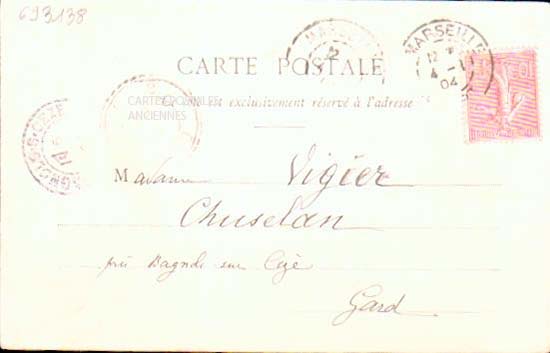 693138
MARSEILLE
12
4
04
CARTE POSTALE
CARTES POSTALES
ANCIENNES
est exclusivement réservé à l'adresse
Madame Vigier
Chuselan
près Bagnols sur Cèze
Gard